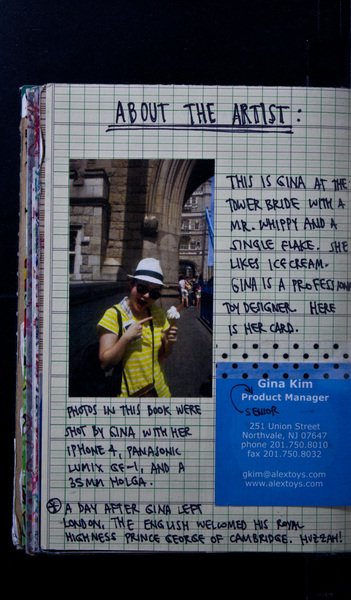 ABOUT THE ARTIST:
THIS IS GINA AT THE
TOWER BRIDGE WITH A
MR. WHIPPY AND A
SINGLE FLAKE. SHE
LIKES ICE CREAM.
GINA IS A PROFESSIONAL
TOY DESIGNER HERE
IS HER CARD.
Gina Kim
Product Manager
SENIOR
251 Union Street
Northvale, NJ 07647
phone 201.750.8010
fax 201.750.8032
gkim@alextoys.com
www.alextoys.com
PHOTOS IN THIS BOOK WERE
SHOT BY GINA WITH HER
IPHONE 4, PANASONIC
LUMIX GF-1, AND A
35MM HOLGA.
A DAY AFTER GINA LEFT
LONDON, THE ENGLISH WELCOMED HIS ROYAL
HIGHNESS PRINCE GEORGE OF CAMBRIDGE. HUZZAH!